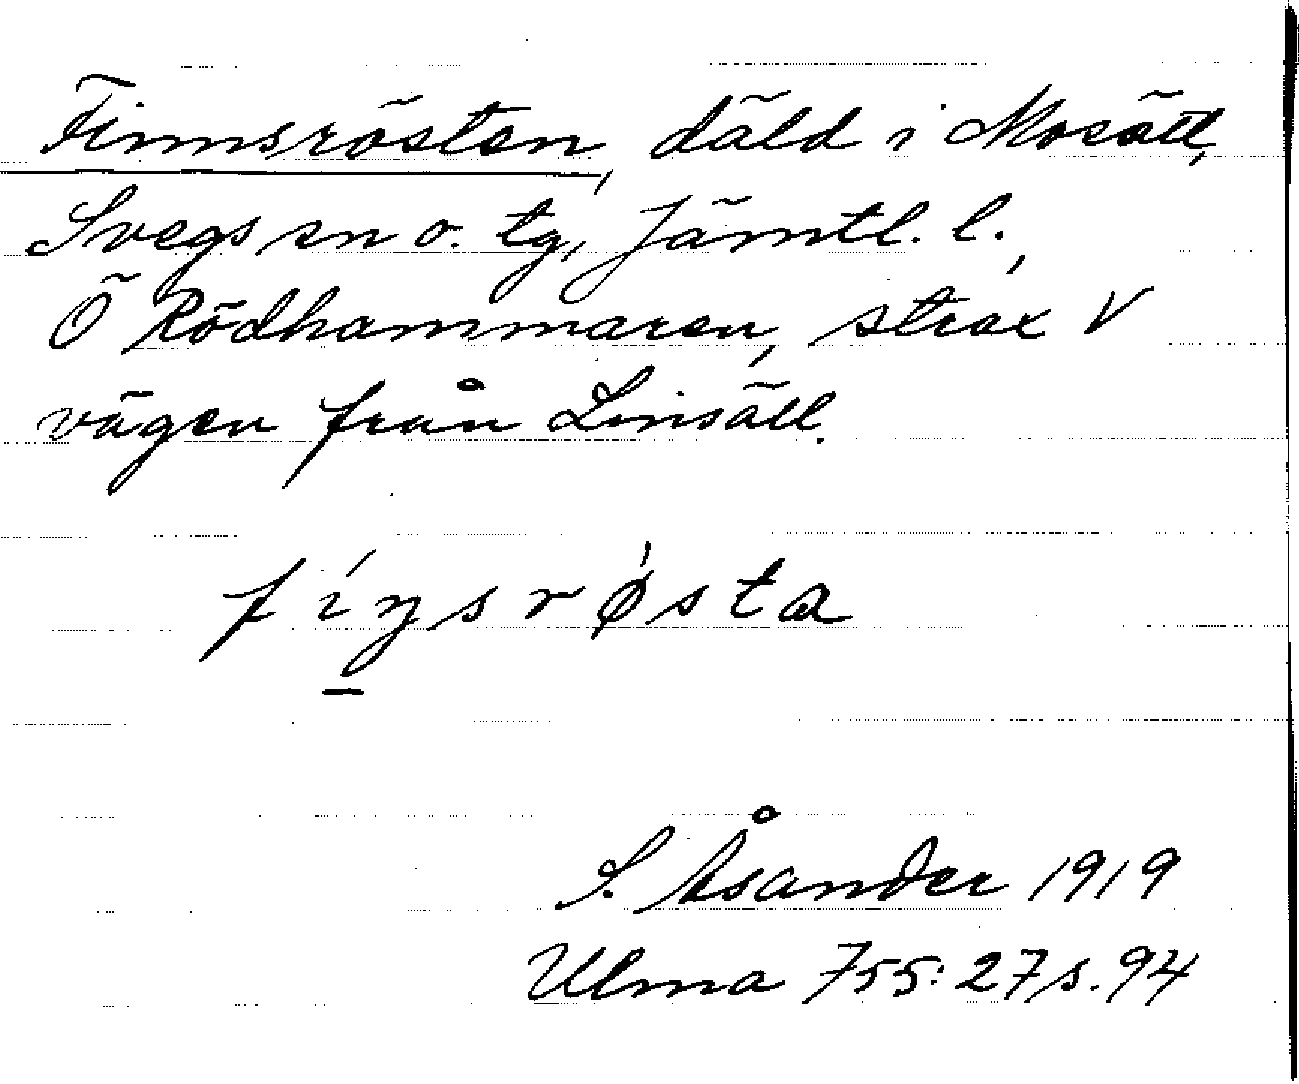 Finnsrösten, däld i Mosätt,
Svegs sn o. tg, Jämtl. l.,
Ö Rödhammaren, strax V
vägen från Linsäll.
fíŋsrǿsta
S. Åsander 1919
Ulma 755:27 s. 94